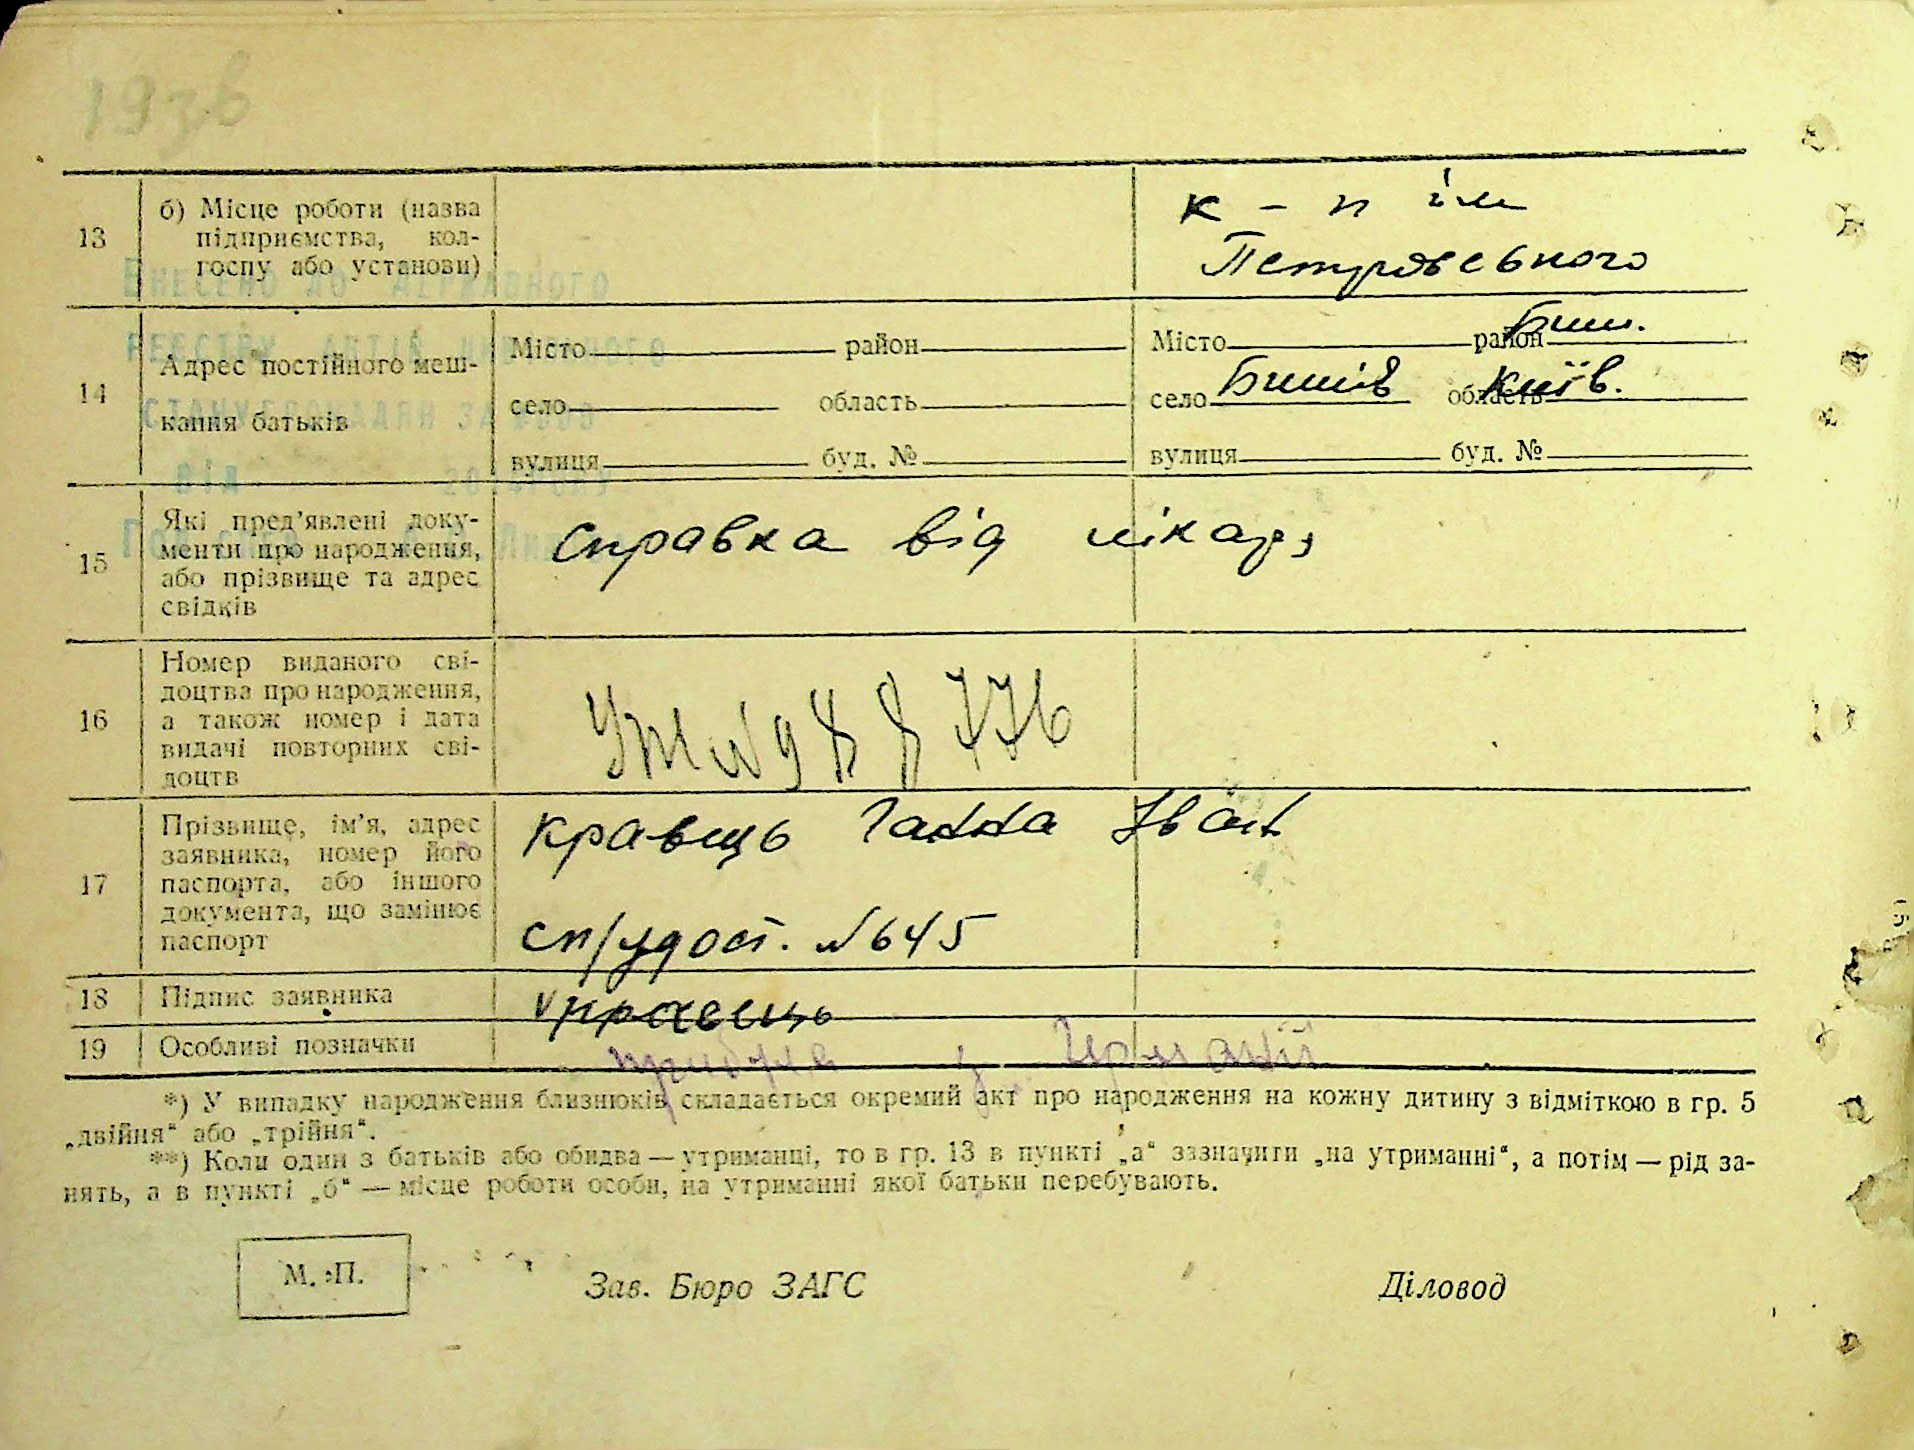 1936
13
б) Місце роботи (назва
підприємства, кол-
госпу або установи)
к - п ім
Петровського
Внесено до державного
реєстру актів цивільного
стану громадян за №
від
14
Адрес постійного меш-
кання батьків
Місто район
село область
вулиця буд. №
Місто район Биш.
село Бишів область Київ.
вулиця буд. №
15
Які пред'явлені доку-
менти про народження,
або прізвище та адрес
свідків
справка від лікаря
16
Номер виданого сві-
доцтва про народження,
а також номер і дата
видачі повторних сві-
доцтв
№ 988776
17
Прізвище, ім'я, адрес
заявника, номер його
паспорта, або іншого
документа, що замінює
паспорт
Кравець Ганна Іван
сп/удост. №645
18
Підпис заявника
Кравець
19
Особливі позначки
прибула з Германії
*) У випадку народження близнюків складається окремий акт про народження на кожну дитину з відміткою в гр. 5
„двійня“ або „трійня“.
**) Коли один з батьків або обидва — утриманці, то в гр. 13 в пункті „а“ зазначити „на утриманні“, а потім — рід за-
нять, а в пункті „б“ — місце роботи особи, на утриманні якої батьки перебувають.
М. П.
Зав. Бюро ЗАГС
Діловод